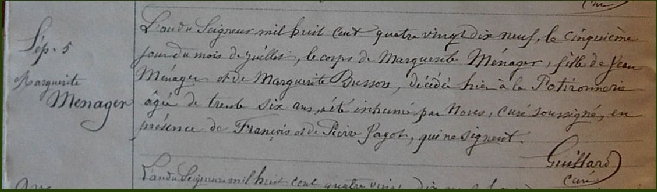 curé
Sép. 5
Marguerite
Menager
L'an du Seigneur mil huit cent quatre vingt dix neuf, le cinquième
jour du mois de juillet, le corps de Marguerite Ménager, fille de Jean
Ménager et de Marguerite Busson, décédée hier à la Potironnerie
âgée de trente six ans, a été inhumé par Nous, curé soussigné, en
présence de François et de Pierre Pagot, qui ne signent.
Guittard
curé
L'an du Seigneur mil huit cent quatre vingt dix neuf